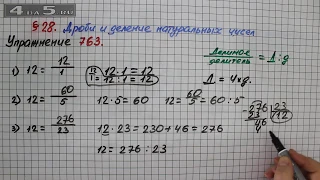 4 - 5 . NET
§ 28. Дроби и деление натуральных чисел
Упражнение 763.
делимое / делитель = Д : d
1) 12 = 12/1
12/1 = 12 : 1 = 12
12 : 1 = 12
Д = Ч × d.
2) 12 = 60/5 12 · 5 = 60 12 = 60/5 = 60 : 5
3) 12 = 276/23 12 · 23 = 230 + 46 = 276
12 = 276 : 23
276 | 23
23 | 12
46
4